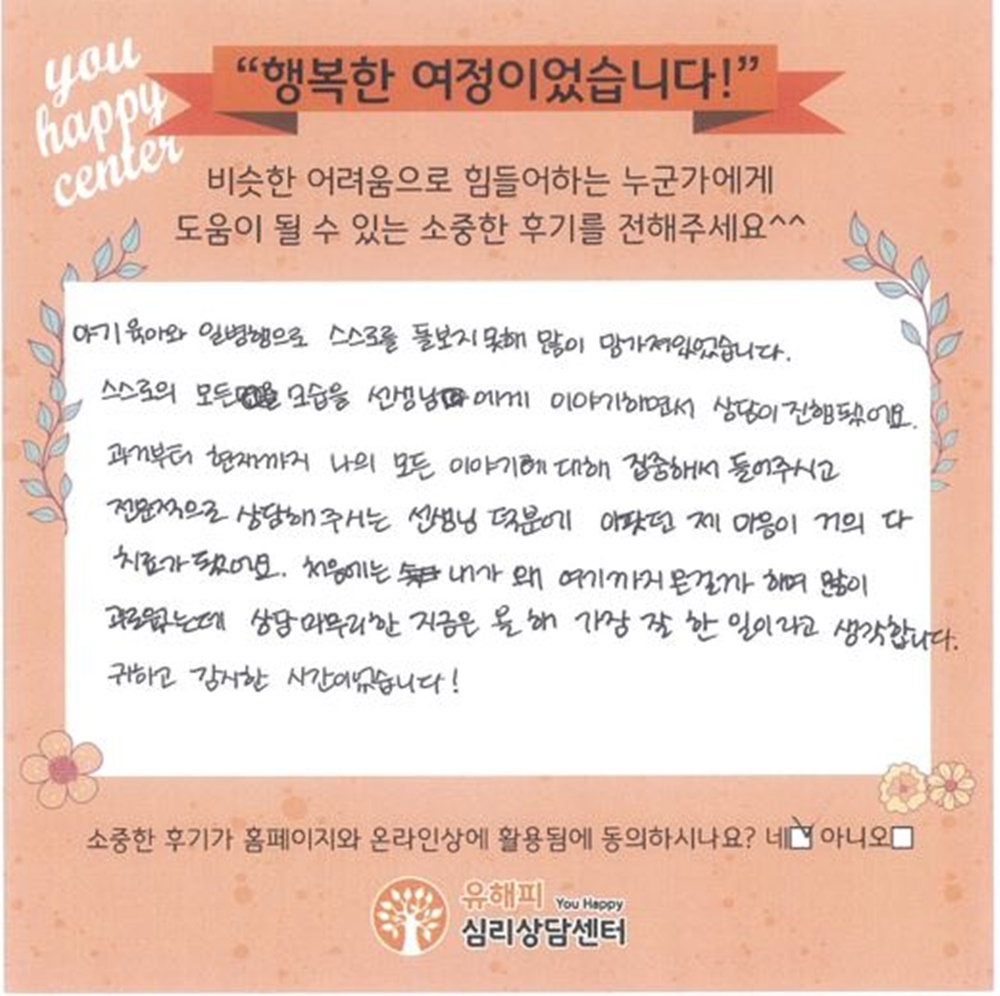 you
happy
center
“행복한 여정이었습니다!”
비슷한 어려움으로 힘들어하는 누군가에게
도움이 될 수 있는 소중한 후기를 전해주세요^^
아기 육아와 일병행으로 스스로를 돌보지 못해 많이 망가져있었습니다.
스스로의 모든 모습을 선생님 에게 이야기하면서 상담이 진행됐어요.
과거부터 현재까지 나의 모든 이야기에 대해 집중해서 들어주시고
전문적으로 상담해 주시는 선생님 덕분에 아팠던 제 마음이 거의 다
치료가 됐어요. 처음에는 내가 왜 여기까지 온걸까 하며 많이
괴로웠는데 상담 마무리한 지금은 올 해 가장 잘 한 일이라고 생각합니다.
귀하고 감사한 시간이었습니다!
소중한 후기가 홈페이지와 온라인상에 활용됨에 동의하시나요? 네 아니오
유해피 You Happy
심리상담센터